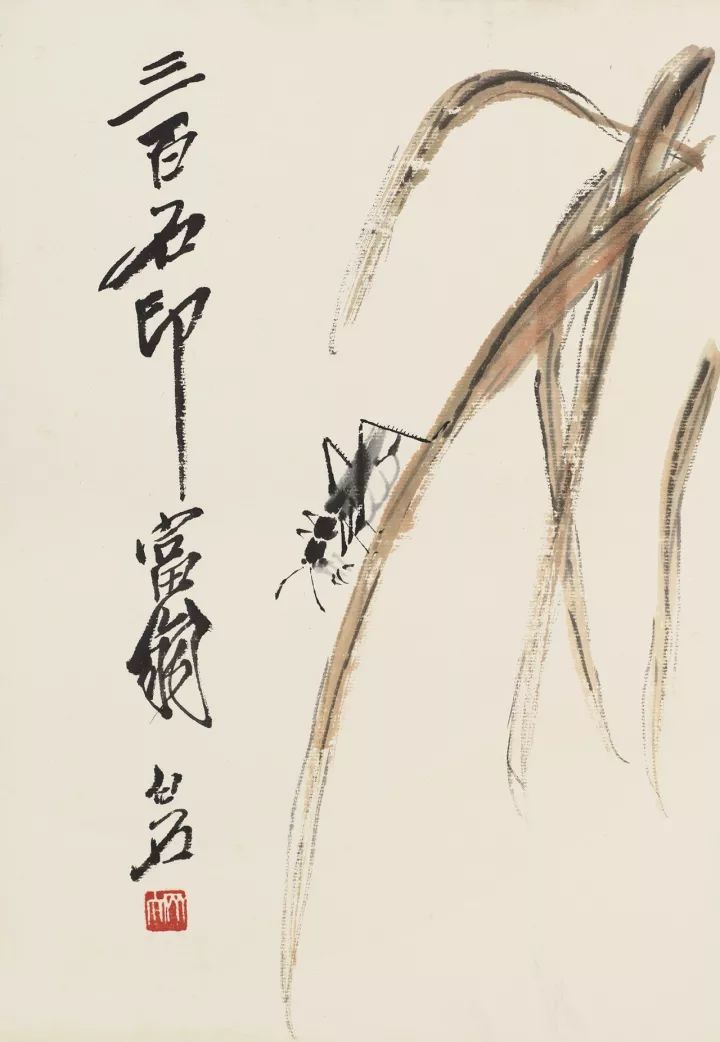 三百石印富翁白石